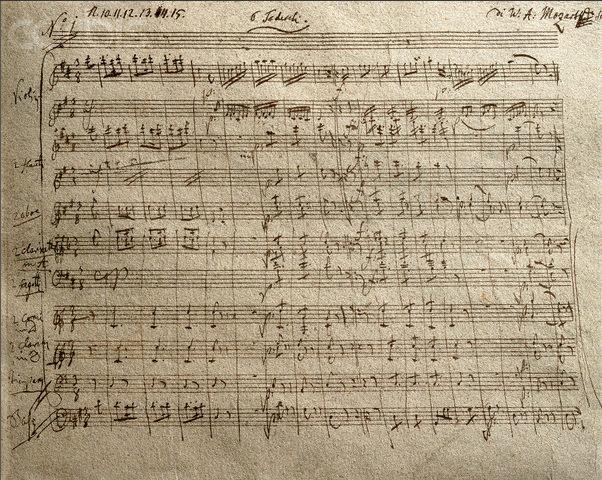 No. 1. 9. 10. 11. 12. 13. 14. 15. 6 Tedeschi. di W. A. Mozart
Violini
2 flauti
2 oboe
2 clarinetti
in A
2 fagotti
2 Corni
2 clarini
in D
Timpani
Bassi